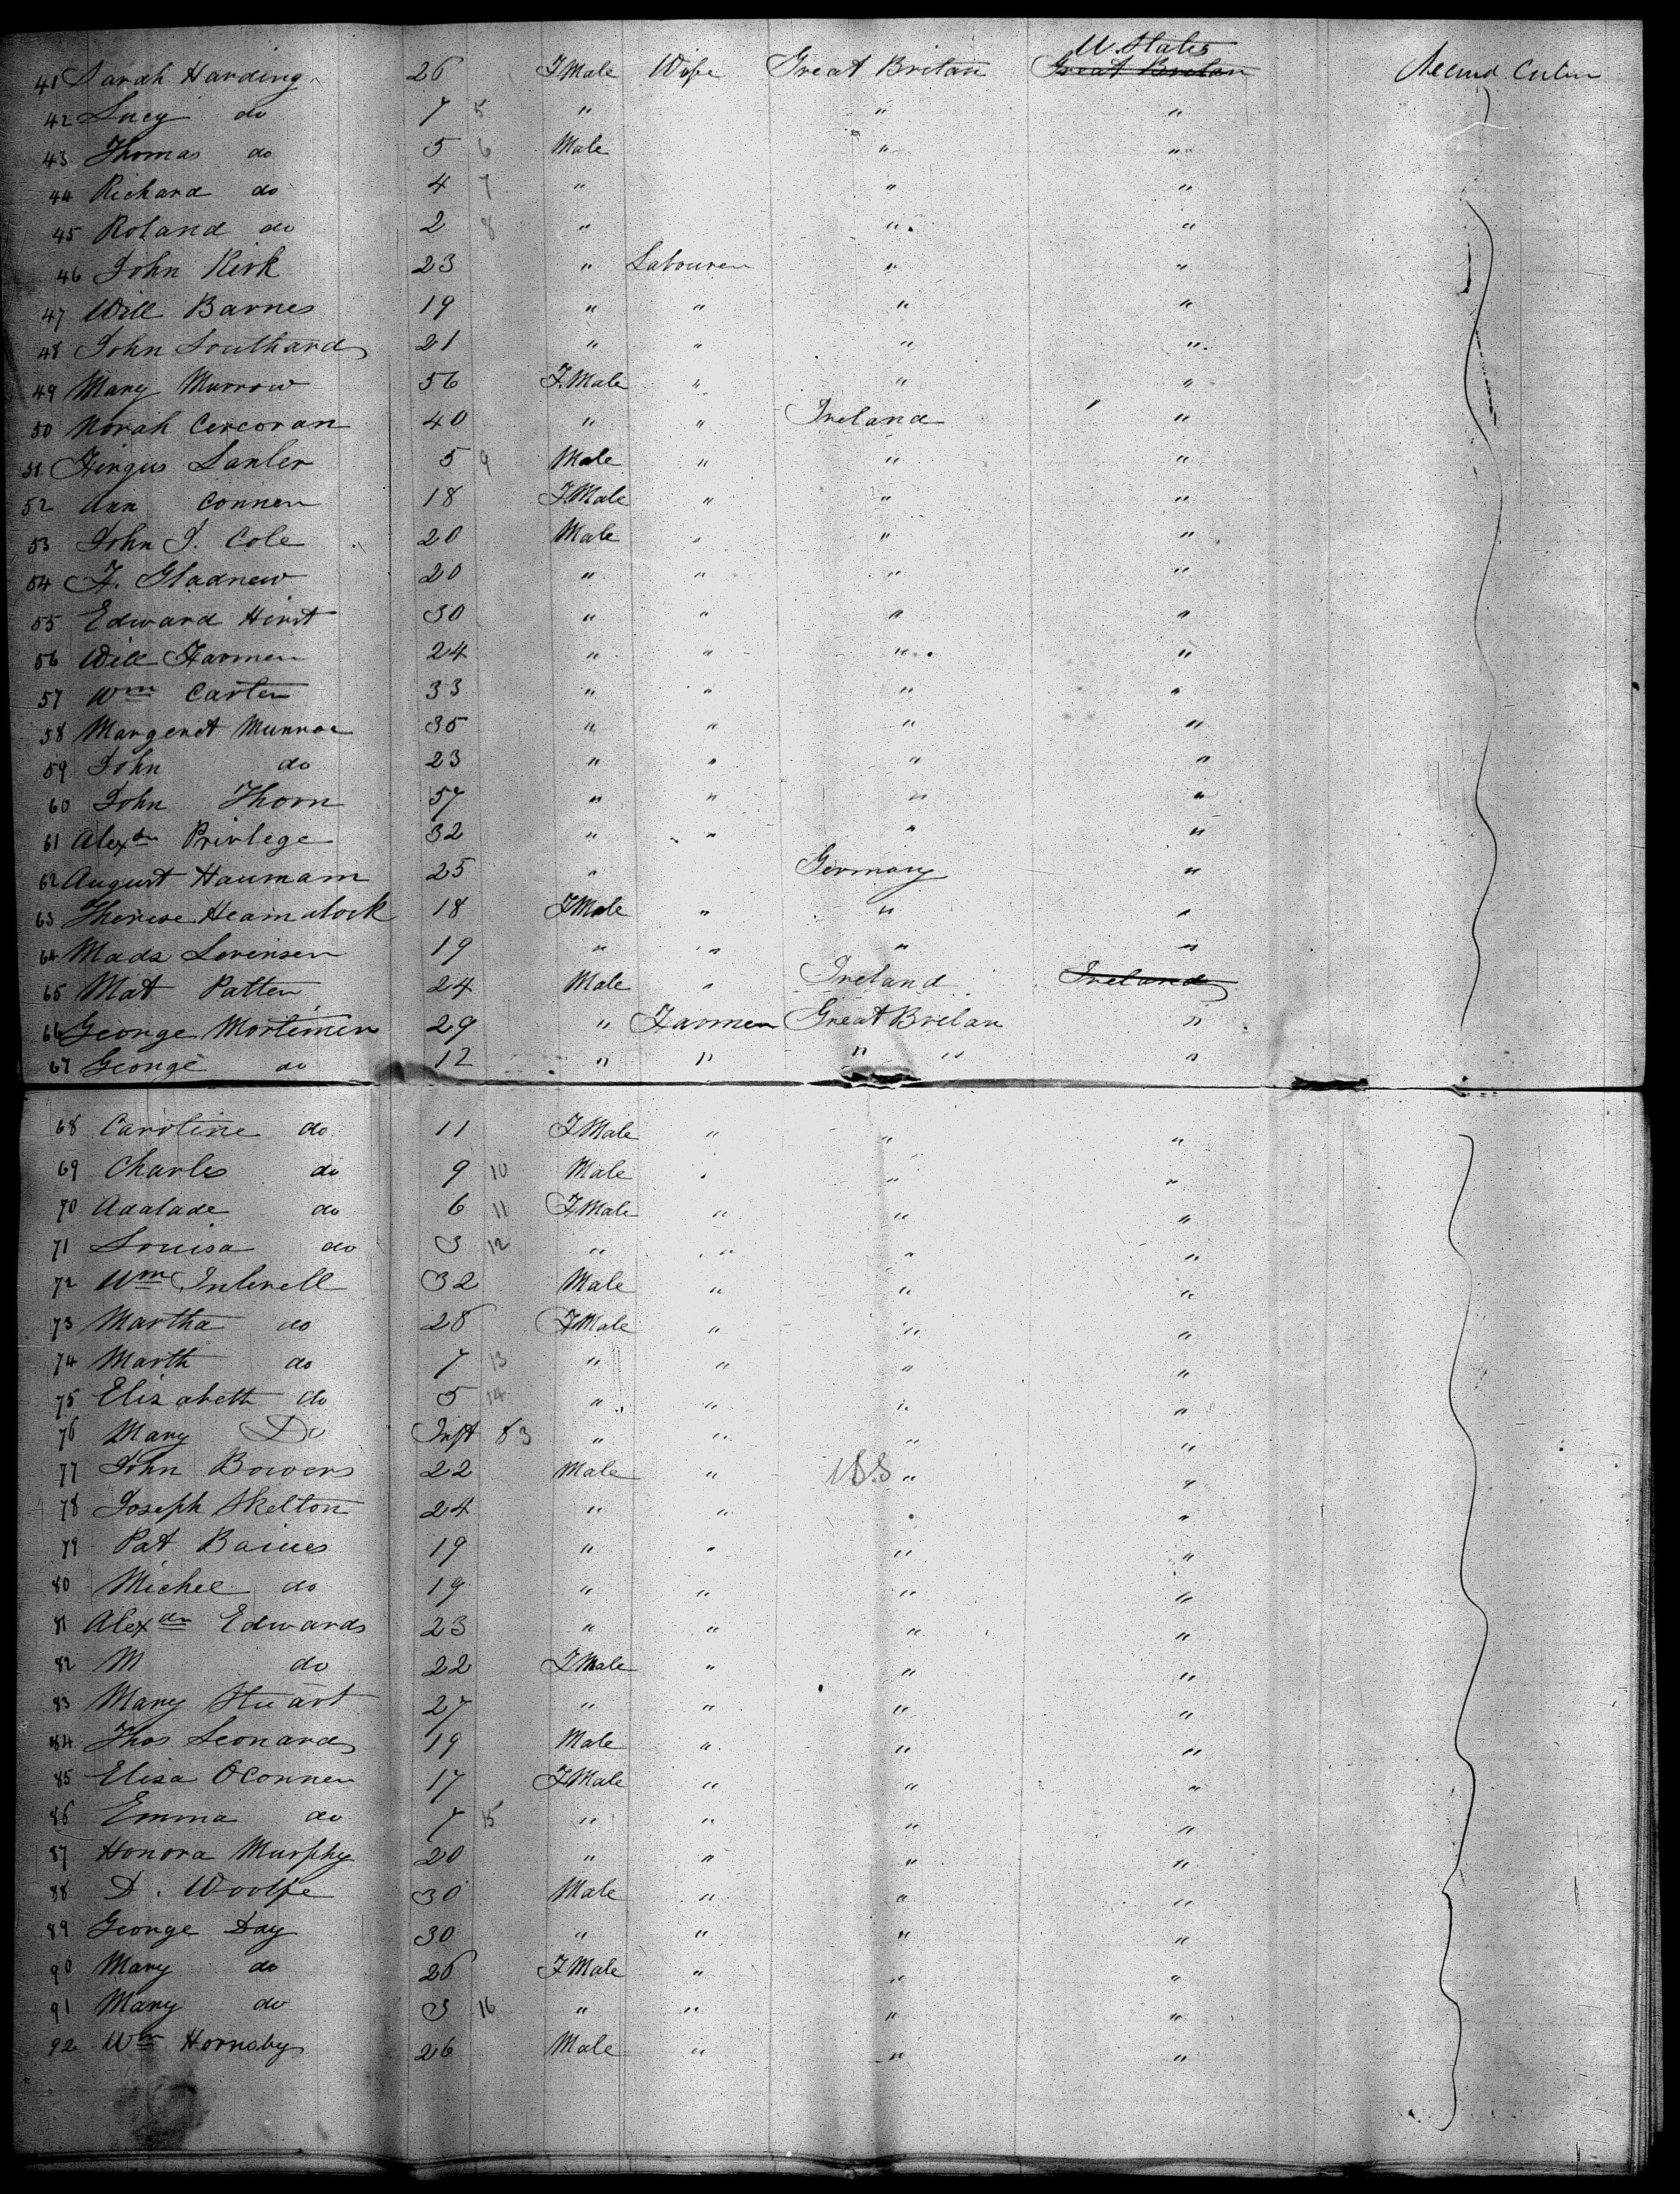 41 Sarah Harding 26 FMale Wife Great Britan U. States Great Britan Second Cabin
42 Lucy do 7 5 " " "
43 Thomas do 5 6 Male " "
44 Richard do 4 7 " " "
45 Roland do 2 8 " " "
46 John Kirk 23 " Labourer " "
47 Will Barnes 19 " " " "
48 John Southard 21 " " " "
49 Mary Murrow 56 F.Male " " "
50 Norah Corcoran 40 " " Ireland "
51 Fergus 5 9 Male " " "
52 Ann Conner 18 F.Male " " "
53 John J. Cole 20 Male " " "
54 F. Gladnew 20 " " " "
55 Edward Hirst 30 " " " "
56 Will Farmer 24 " " " "
57 Wm Carter 33 " " " "
58 Margeret Munroe 35 " " " "
59 John do 23 " " " "
60 John Thorn 57 " " " "
61 Alexdr Privlege 32 " " " "
62 August Haumann 25 " Germany "
63 Therese 18 FMale " " "
64 Mads Sorensen 19 " " " "
65 Mat Patten 24 Male " Ireland Ireland
66 George Mortimer 29 " Farmer Great Britan "
67 George do 12 " " " " "
68 Caroline do 11 FMale " " "
69 Charles do 9 10 Male " " "
70 Adalade do 6 11 FMale " " "
71 Louisa do 3 12 " " " "
72 Wm 32 Male " " "
73 Martha do 28 FMale " " "
74 Marth do 7 13 " " " "
75 Elizabeth do 5 14 " " " "
76 Mary Do Inft 83 " " " "
77 John Bowers 22 Male " "
78 Joseph Skelton 24 " " " "
79 Pat Baines 19 " " " "
80 Michel do 19 " " " "
81 Alexdr Edwards 23 " " " "
82 M do 22 FMale " " "
83 Mary Stuart 27 " " " "
84 Thos Leonard 19 Male " " "
85 Elisa OConner 17 FMale " " "
86 Emma do 7 15 " " " "
87 Honora Murphy 20 " " " "
88 D. Woolfe 30 Male " " "
89 George Day 30 " " " "
90 Mary do 26 FMale " " "
91 Mary do 3 16 " " " "
92 Wm Hornsby 26 Male " " "